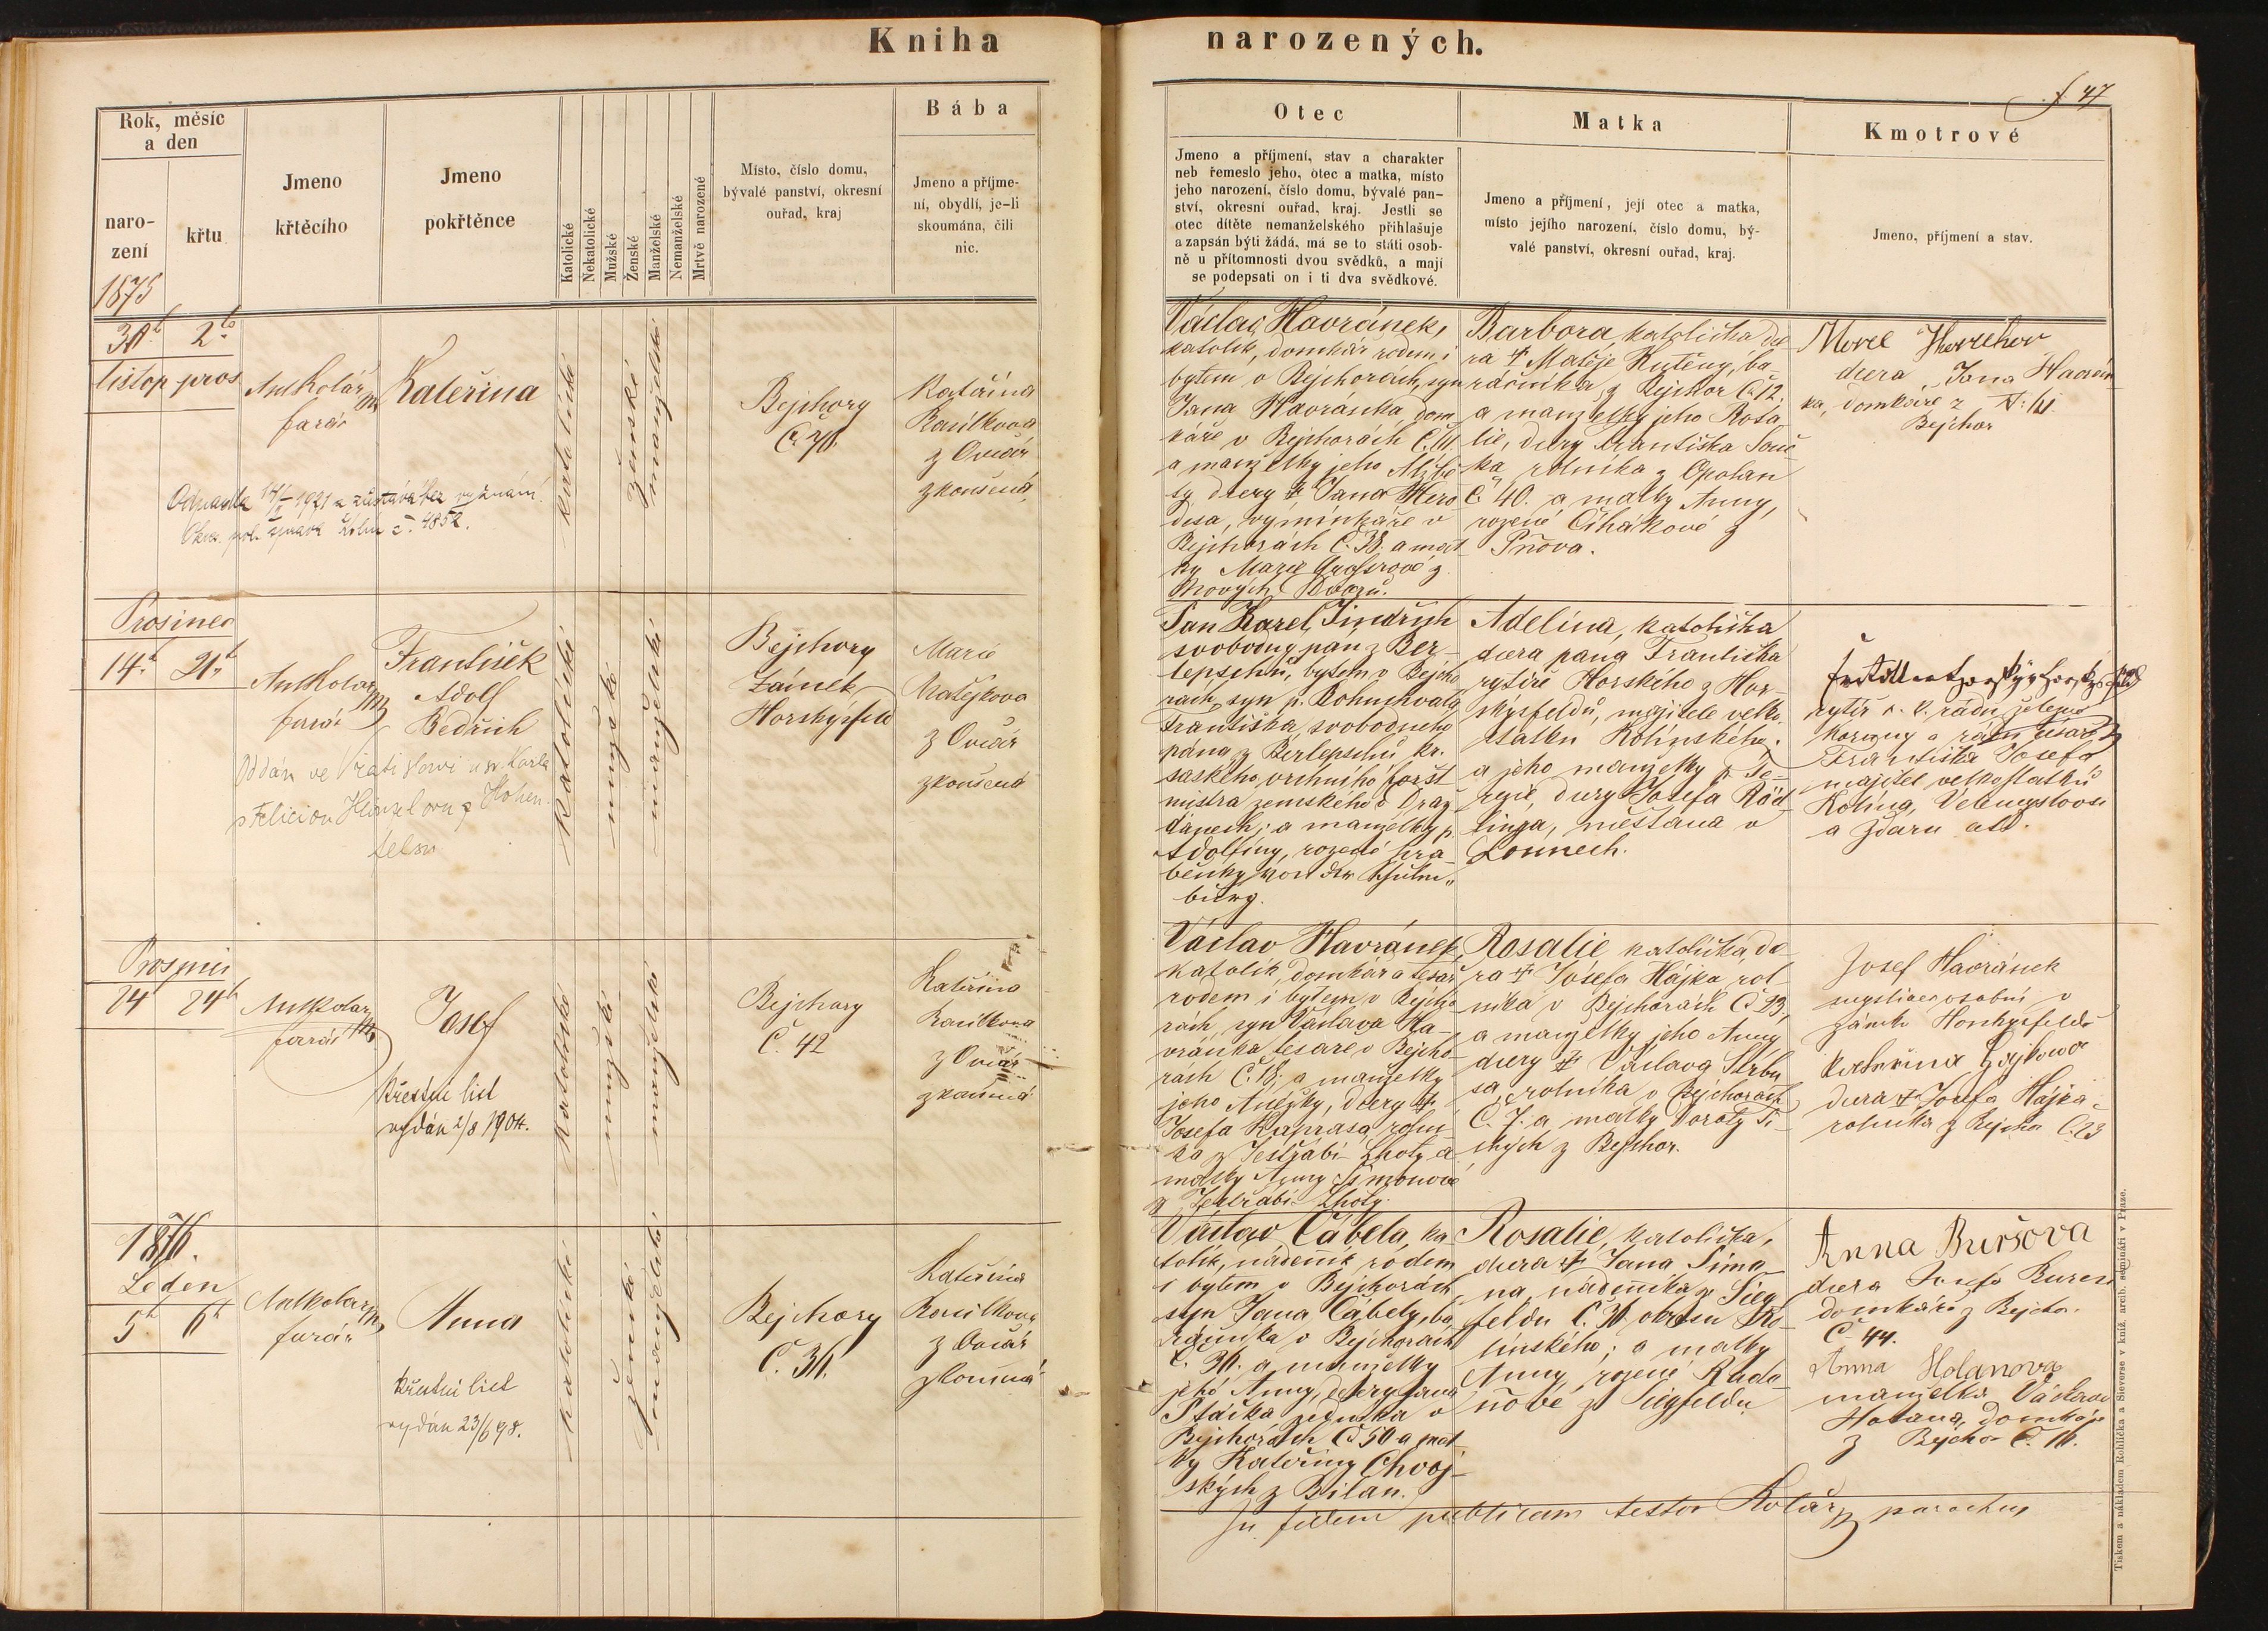 Kniha
narozených.
f 47
Rok, měsíc
a den
naro-
zení
křtu
Jmeno
křtěcího
Jmeno
pokřtěnce
Katolické
Nekatolické
Mužské
Ženské
Manželské
Nemanželské
Mrtvě narozené
Místo, číslo domu,
bývalé panství, okresní
ouřad, kraj
Bába
Jmeno a příjme-
ní, obydlí, je-li
skoumána, čili
nic.
Otec
Jmeno a příjmení, stav a charakter
neb řemeslo jeho, otec a matka, místo
jeho narození, číslo domu, bývalé pan-
ství, okresní ouřad, kraj. Jestli se
otec dítěte nemanželského přihlašuje
a zapsán býti žádá, má se to státi osob-
ně u přítomnosti dvou svědků, a mají
se podepsati on i ti dva svědkové.
Matka
Jmeno a příjmení, její otec a matka,
místo jejího narození, číslo domu, bý-
valé panství, okresní ouřad, kraj.
Kmotrové
Jmeno, příjmení a stav.
1875
30. 2.
listop pros
Ant Kolář
farář
Kateřina
katolické
ženské
manželské
Bejchory
Kateřina
z Ovčár
zkoušená
1921 a zůstává bez vyznání.
č. 4852.
Václav Havránek,
katolík, domkář rodem i
bytem v Bejchorách, syn
Jana Havránka, dom
káře v Bejchorách
a manželky jeho
ty dcery † Jana Hero
disa, výminkáře v
Bejchorách Č. 38. a mat
ky Marie
Nových Dvorů.
Barbora, katolička dce
ra † Matěje Kutěny, ba
ráčníka z Bejchor Č. 12.
a manželky jeho Rosa
lie, dcery Františka Souč
ka, rolníka z Opolan
Č. 40. a matky Anny,
rozené Čihákové z
Pňova.
dcera Jana Havrán
ka, domkáře z
Bejchor
Prosinec
14. 21.
Ant Kolář
farář
František
Adolf
Bedřich
Oddán ve Vratislavi u sv. Karla
s Felicion
katolické
mužské
manželské
Bejchory
Zámek
Horskýsfeld
Marie
Matějkova
z Ovčár
zkoušená
Pan Karel Jindřich
svobodný pán z Ber-
lepschů, bytem v Bejcho
rách, syn p. Bohuchvala
Františka, svobodného
pána z Berlepschů kr.
saského vrchního foršt
mistra zemského v Draž
ďanech; a manželky p.
Adolfiny, rozené hra-
běnky von der Schulen-
burg.
Adelina, katolička
dcera pana Františka
rytíře Horského z Hor-
skysfeldů, majitele velko
statku Kolínského
a jeho manželky p. Te-
rezie, dcery Josefa Röd
linga, měšťana v
Lounech.
rytíř c. k. řádu železné
koruny a řádu císaře
Františka Josefa
majitel velkostatků
Kolína,
a Žďáru atd.
Prosinec
24 24
Ant Kolář
farář
Josef
Křestní list
vydán 2/8 1904.
katolické
mužské
manželské
Bejchory
Č. 42
Kateřina
z Ovčár
zkoušená
Václav Havránek,
katolík, domkář a tesař
rodem i bytem v Bejcho
rách, syn Václava Ha-
vránka tesaře v Bejcho-
rách Č. 18; a manželky
jeho Alžběty, dcery †
Josefa Kaprasa rolní
ka z Jestřábí Lhoty a
matky Anny Šimonové
z Jestřábí Lhoty.
Rosalie, katolička, dce
ra † Josefa Hájka rol
níka v Bejchorách Č. 23,
a manželky jeho Anny
dcery † Václava Štrbu
sa, rolníka v Bejchorách
Č. 7. a matky Doroty Ti-
ských z Bejchor.
Josef Havránek
myslivec osobní v
zámku Horskysfeldě
Kateřina Hájkova
dcera † Josefa Hájka
rolníka z Bejchor Č. 23
1876.
Leden
5. 6.
Ant Kolář
farář
Anna
Křestní list
vydán 23/6 98.
katolické
ženské
manželské
Bejchory
Č. 36.
Kateřina
z Ovčár
zkoušená
Václav Čábela, ka
tolík, nádeník rodem
i bytem v Bejchorách
syn Jana Čábely, ba
ráčníka v Bejchorách
Č. 36. a manželky
jeho Anny, dcery Jana
Ptáčka zedníka v
Bejchorách Č. 50 a mat
ky Kateřiny Chvoj-
ských z Bílan.
Rosalie, katolička,
dcera † Jana Šima
na, nádeníka z Sieg
feldu Č. 30. okresu Ko
línského; a matky
Anny, rozené Rado-
ňové z Siegfeldu.
Anna Burešova
dcera Josefa Bureše
domkáře z Bejchor
Č. 44.
Anna Holanova
manželka Václava
Holana, domkáře
z Bejchor
In fidem publicam testor Kolář parochus
Tiskem a nákladem Rohlíčka a Sieverse v kníž. arcib. semináři v Praze.